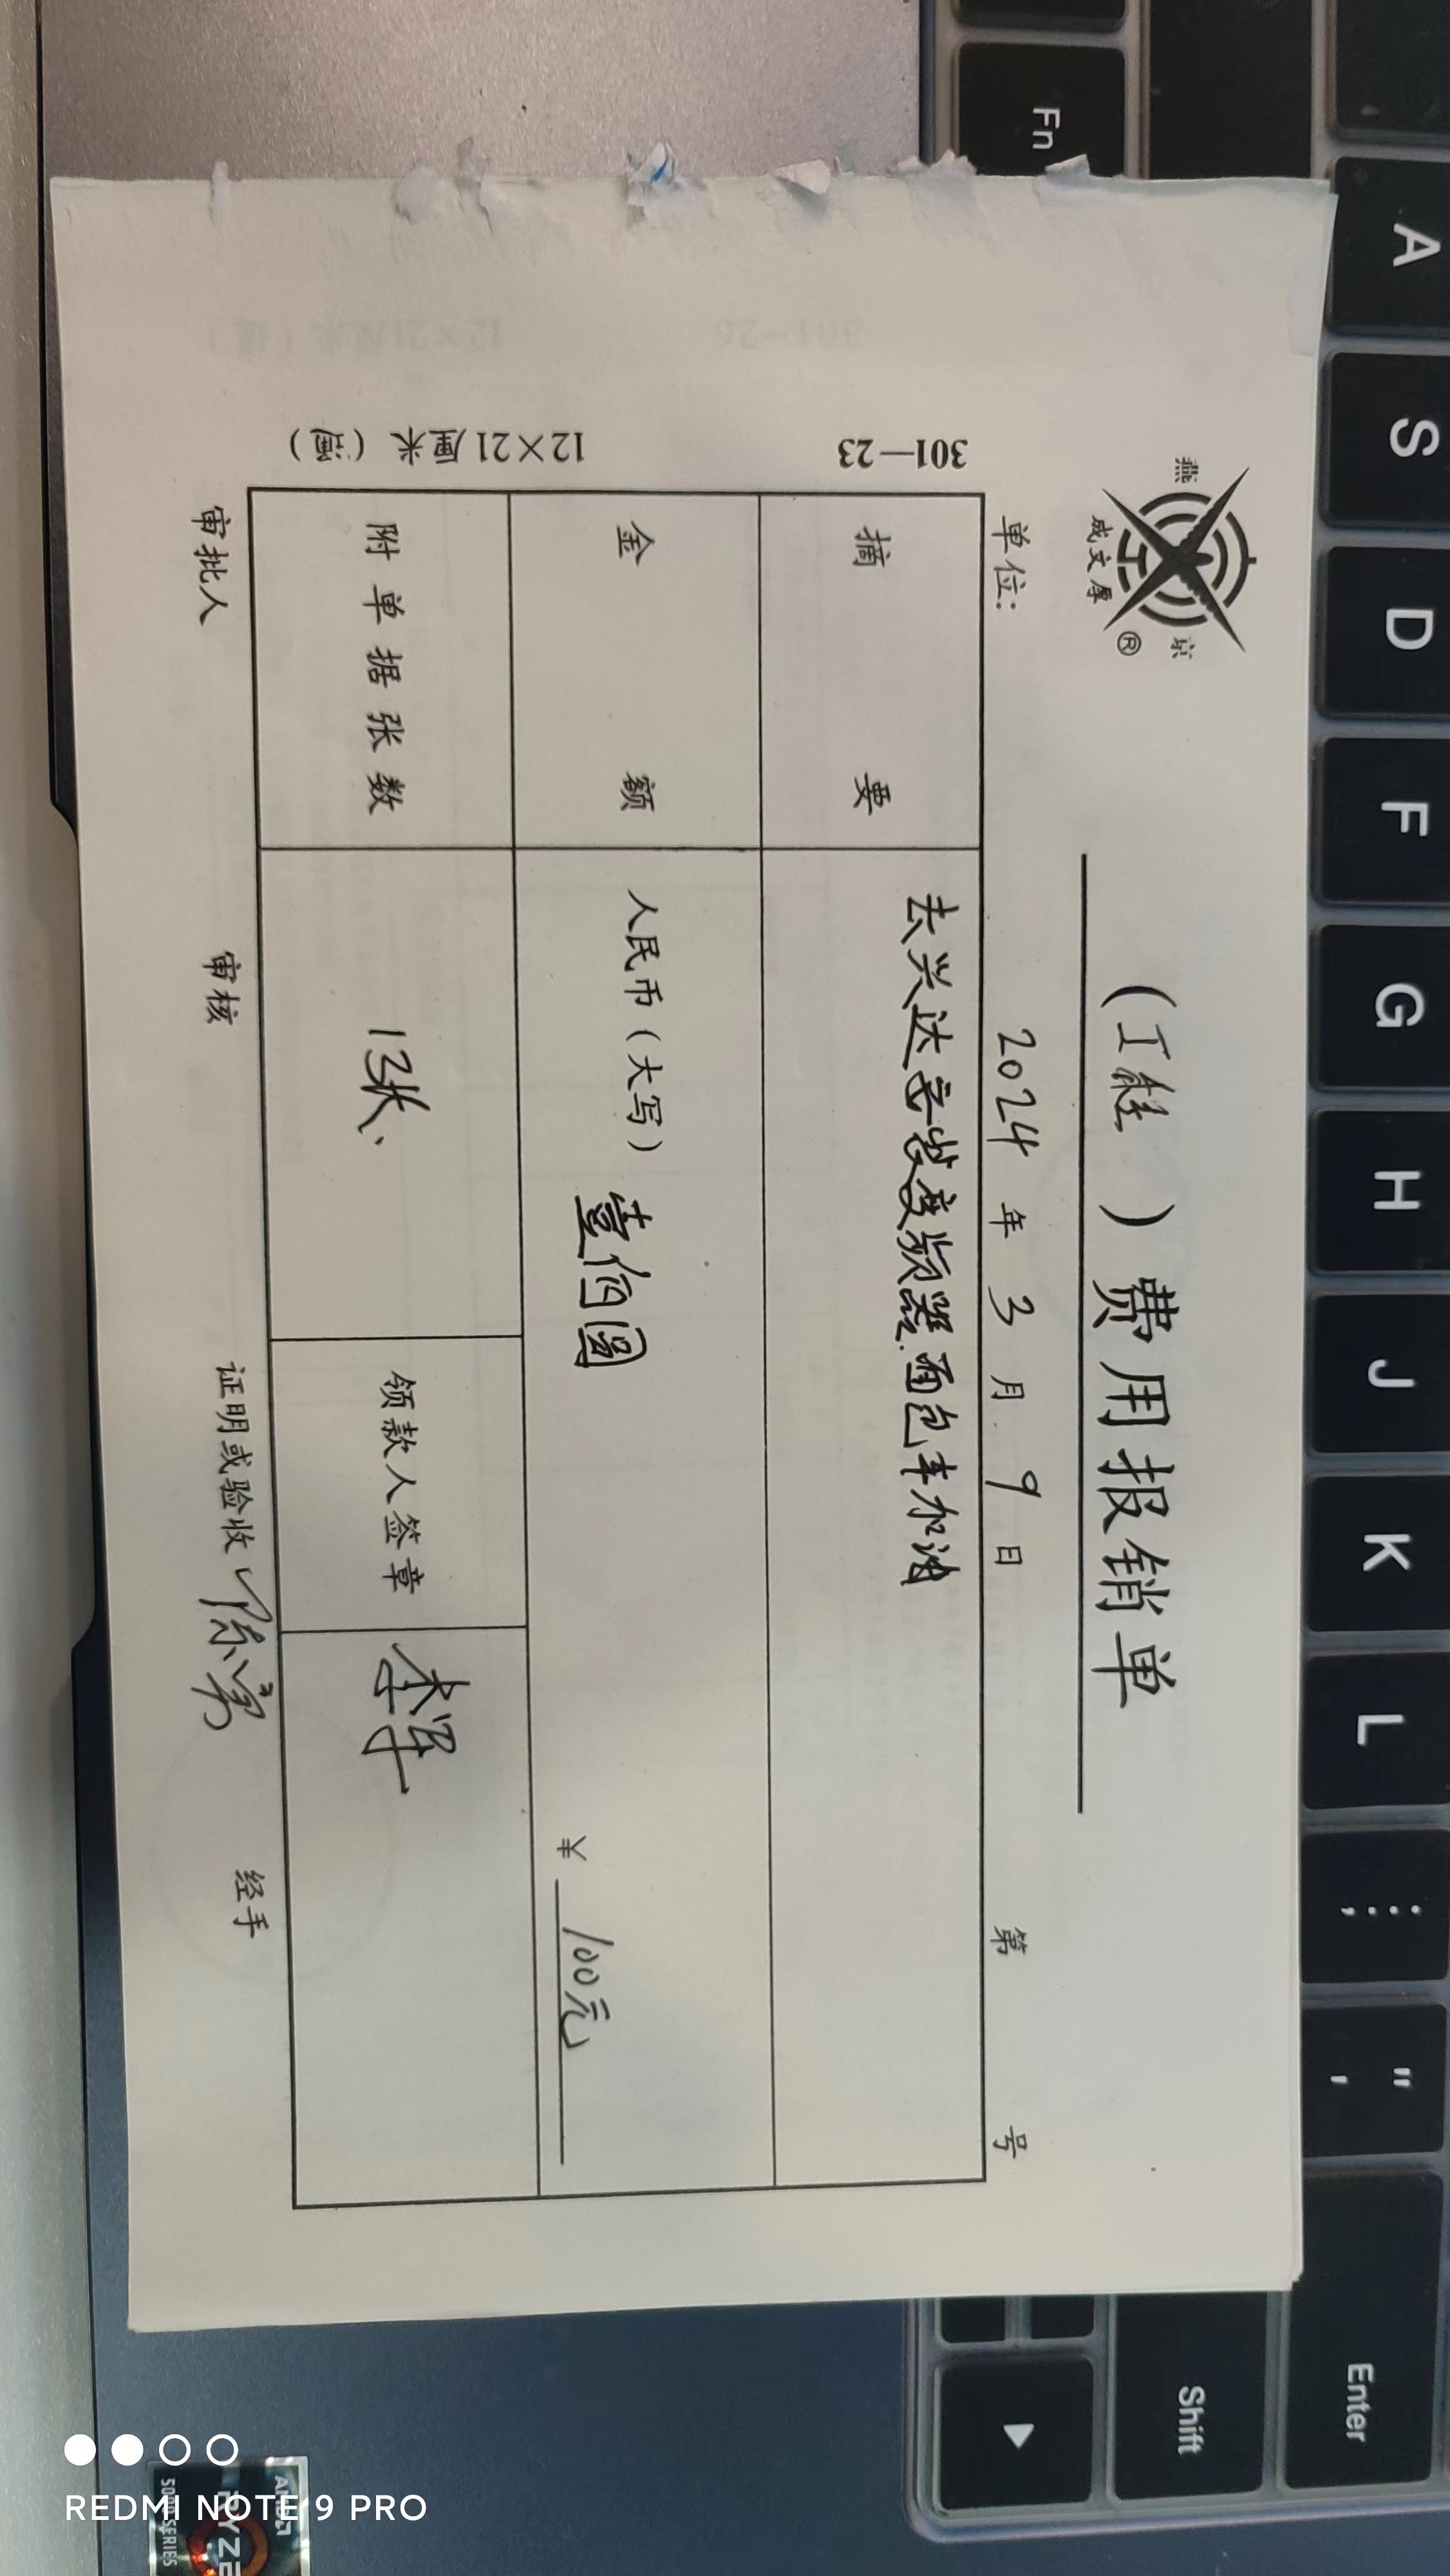 燕 京
成文厚 ®
(工程 ) 费用报销单
单位: 2024 年 3 月 9 日 第 号
摘 要 去兴达安装变频器.面包车加油
金 额 人民币(大写) 壹佰圆 ¥ 100元
附单据张数 1张 领款人签章
审批人 审核 证明或验收 经手
301—23
12×21厘米(通)
Fn
A
S
D
F
G
H
J
K
L
: ;
" '
Enter
Shift
AMD
RYZE
5000 SERIES
REDMI NOTE 9 PRO